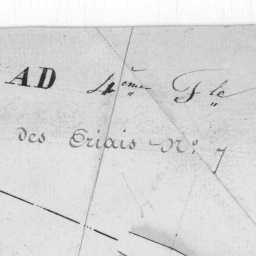 AD 4ème Fle
des Criais No. 7